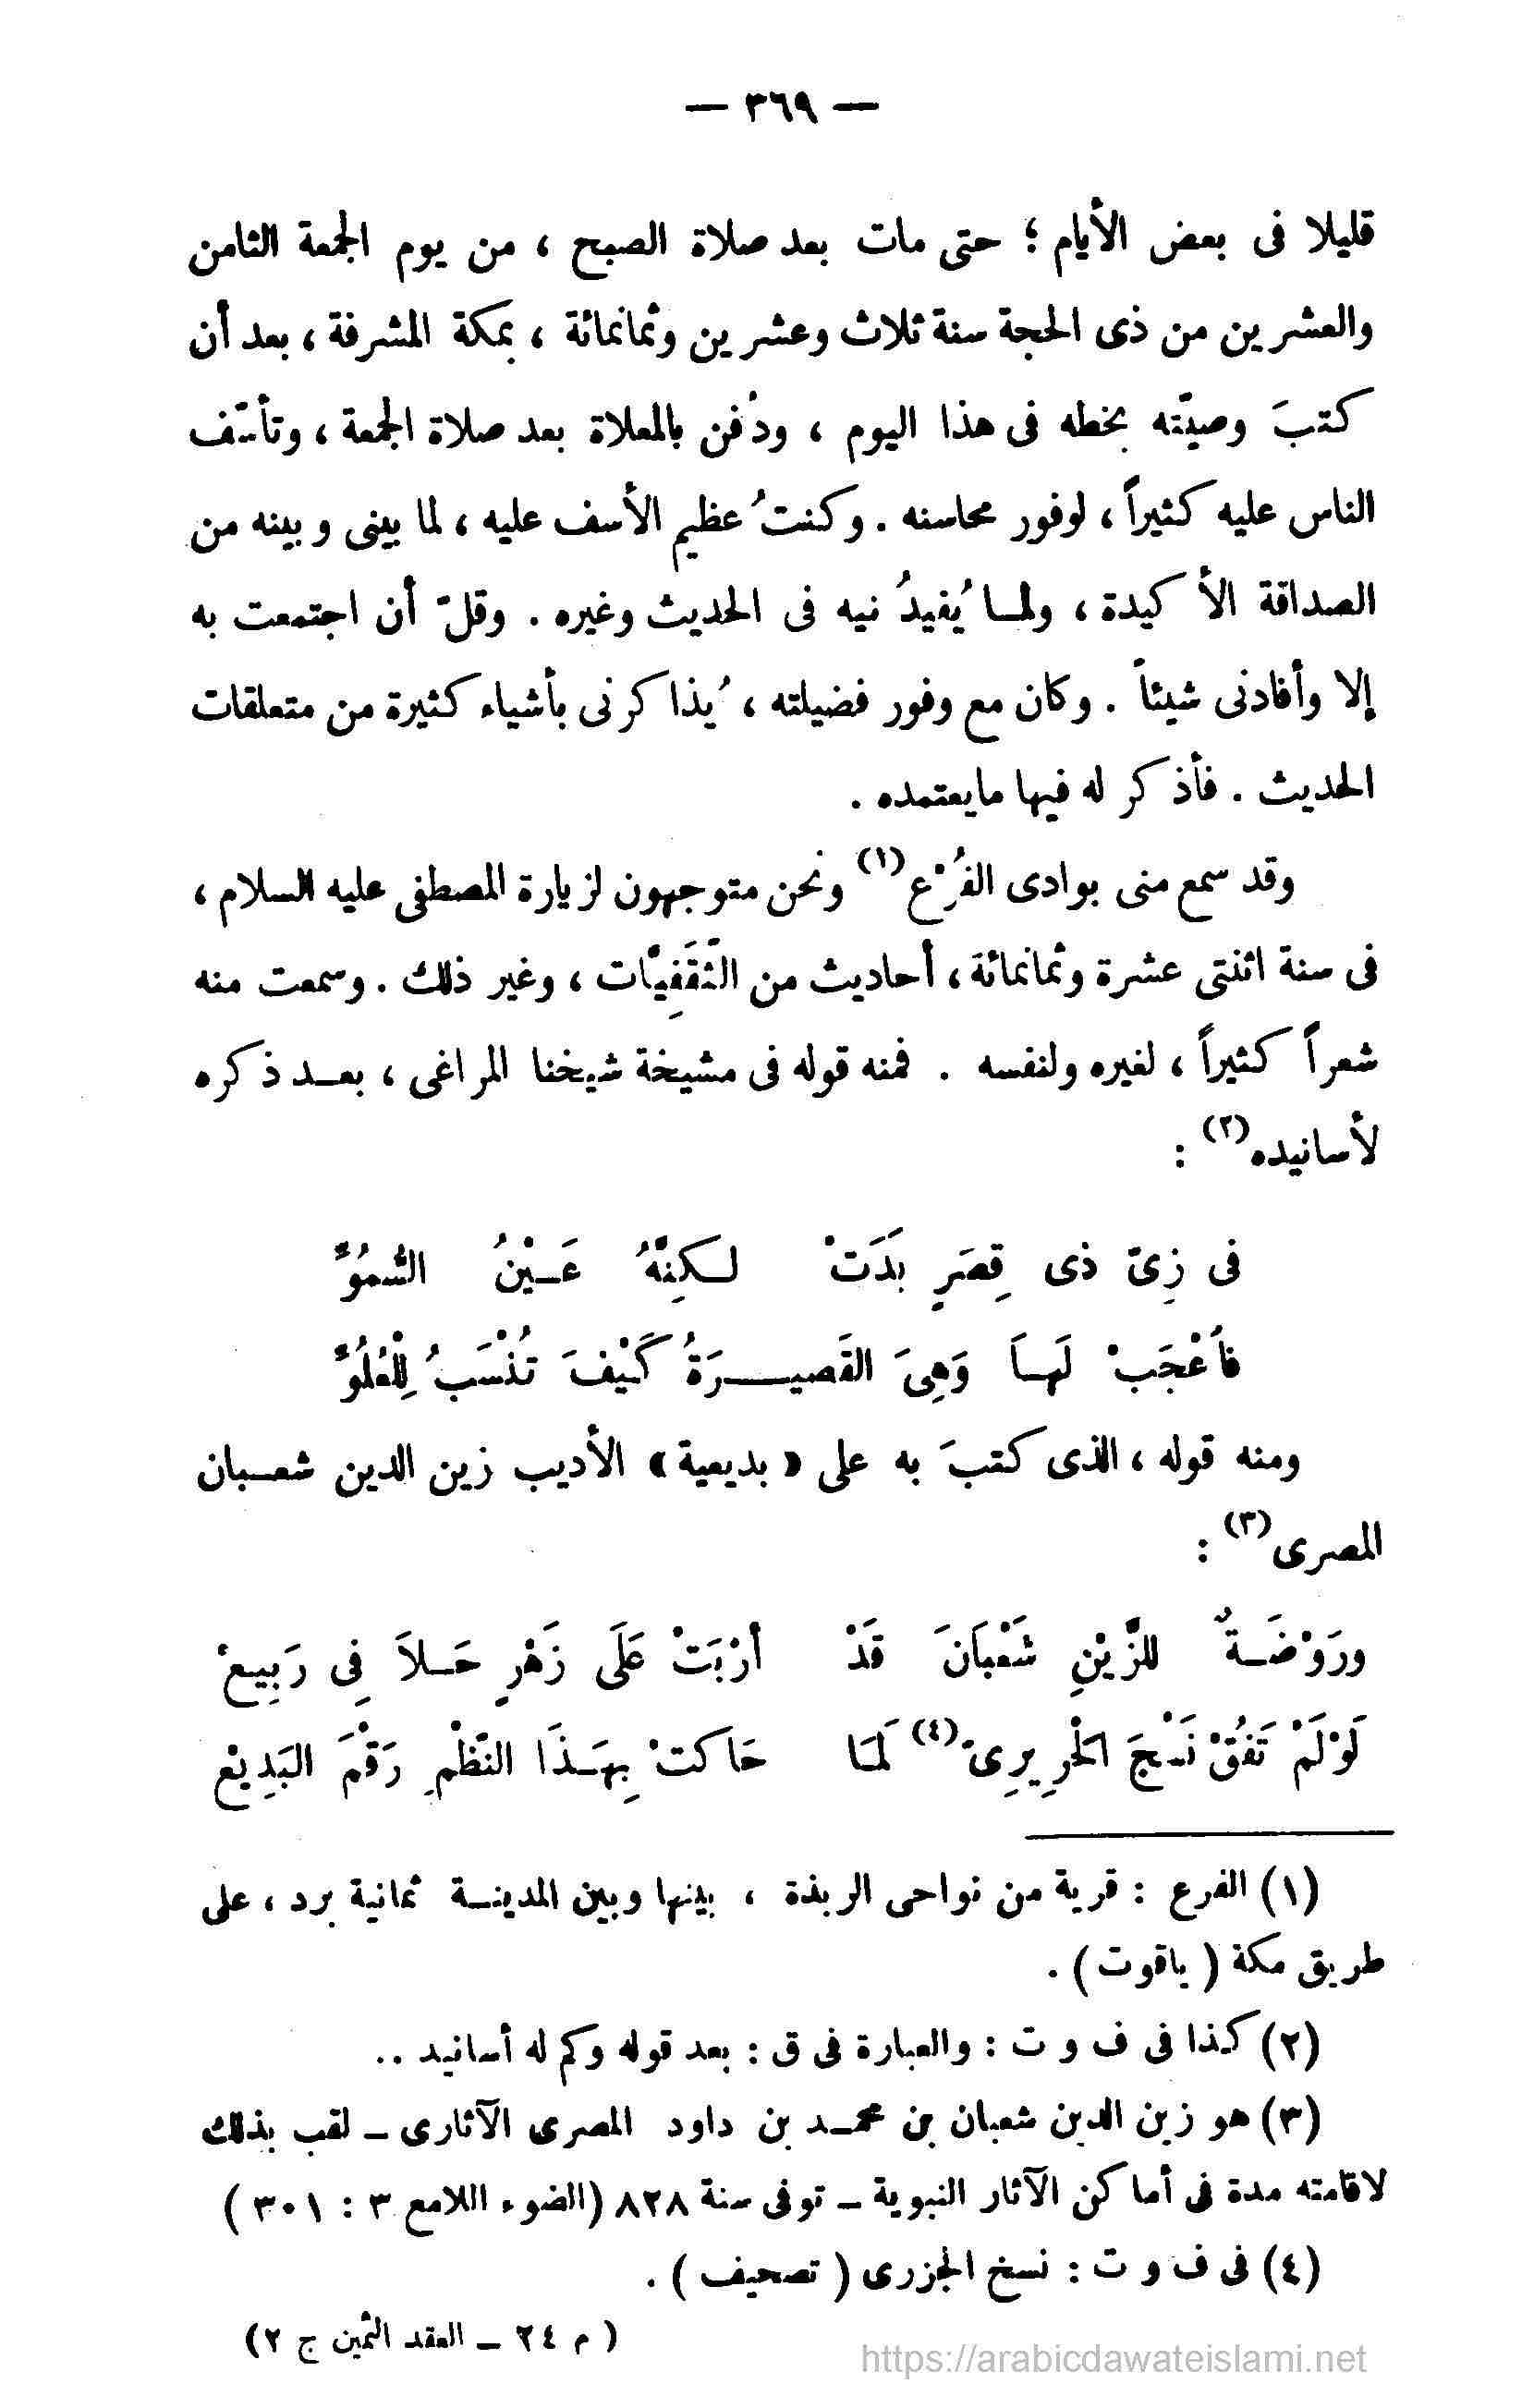 — ٣٦٩ —
قليلا فى بعض الأيام ؛ حتى مات بعد صلاة الصبح ، من يوم الجمعة الثامن
والعشرين من ذى الحجة سنة ثلاث وعشرين وثمانمائة ، بمكة المشرفة ، بعد أن
كتبَ وصيّته بخطه فى هذا اليوم ، ودُفن بالمعلاة بعد صلاة الجمعة ، وتأسّف
الناس عليه كثيراً ، لوفور محاسنه . وكنتُ عظيم الأسف عليه ، لما بينى وبينه من
الصداقة الأكيدة ، ولما يُفيدُنيه فى الحديث وغيره . وقلّ أن اجتمعت به
إلا وأفادنى شيئاً . وكان مع وفور فضيلته ، يُذاكرنى بأشياء كثيرة من متعلقات
الحديث . فأذكر له فيها مايعتمده .
وقد سمع منى بوادى الفُرْع (١) ونحن متوجهون لزيارة المصطفى عليه السلام ،
فى سنة اثنتى عشرة وثمانمائة ، أحاديث من الثَّقَفِيّات ، وغير ذلك . وسمعت منه
شعراً كثيراً ، لغيره ولنفسه . فمنه قوله فى مشيخة شيخنا المراغى ، بعد ذكره
لأسانيده (٢) :
فى زِىّ ذى قِصَرٍ بَدَتْ لكِنَّهُ عَيْنُ السُّمُوّ
فاَعْجَبْ لَهاَ وَهِىَ القَصيرَةُ كَيْفَ تُنْسَبُ لِلْعُلُوّ
ومنه قوله ، الذى كتبَ به على « بديعية » الأديب زين الدين شعبان
المصرى (٣) :
ورَوْضَةٌ للزَّيْنِ شَعْبَانَ قَدْ أرْبَتْ عَلَى زَهْرٍ حَلاَ فِى رَبِيعْ
لَوْلَمْ تَفُقْ نَسْجَ الحَرِيرِىّ (٤) لَمَا حَاكتْ بِهَذَا النّظْمِ رَقْمَ البَدِيعْ
(١) الفرع : قرية من نواحى الربذة ، بينها وبين المدينة ثمانية برد ، على
طريق مكة ( ياقوت ) .
(٢) كذا فى ف و ت : والعبارة فى ق : بعد قوله وكم له أسانيد ..
(٣) هو زين الدين شعبان بن محمد بن داود المصرى الآثارى – لقب بذلك
لاقامته مدة فى أماكن الآثار النبوية – توفى سنة ٨٢٨ (الضوء اللامع ٣ : ٣٠١ )
(٤) فى ف و ت : نسخ الجزرى ( تصحيف ) .
( م ٢٤ – العقد الثمين ج ٢)
https://arabicdawateislami.net